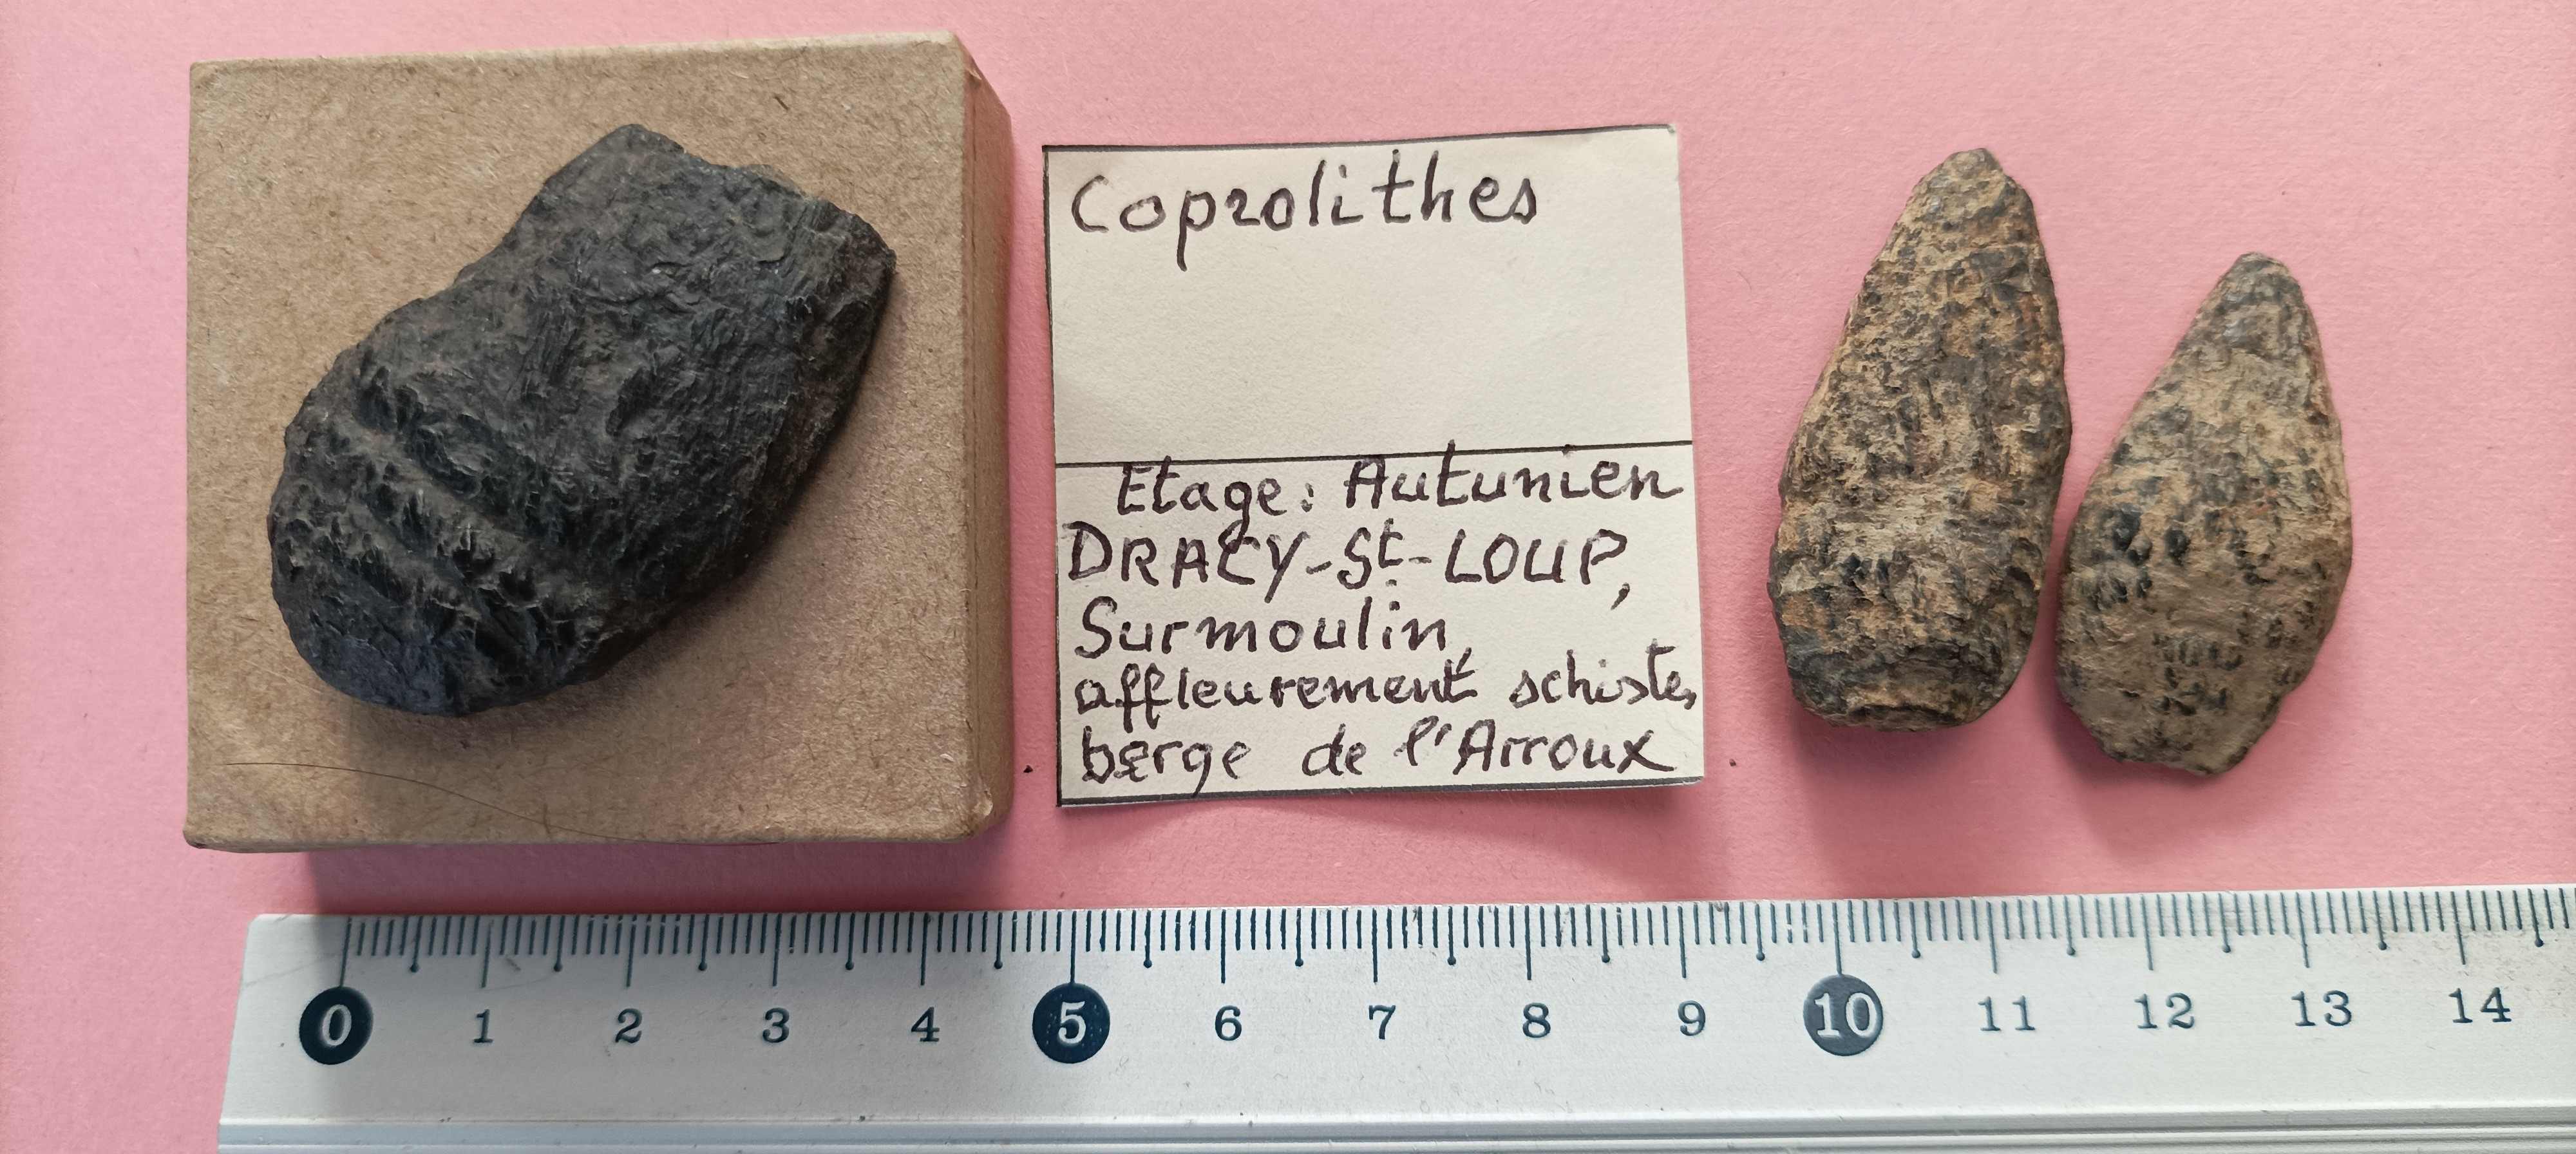 Coprolithes
Etage: Autunien
DRACY-St-LOUP,
Surmoulin,
affleurement schiste,
berge de l'Arroux
0 1 2 3 4 5 6 7 8 9 10 11 12 13 14